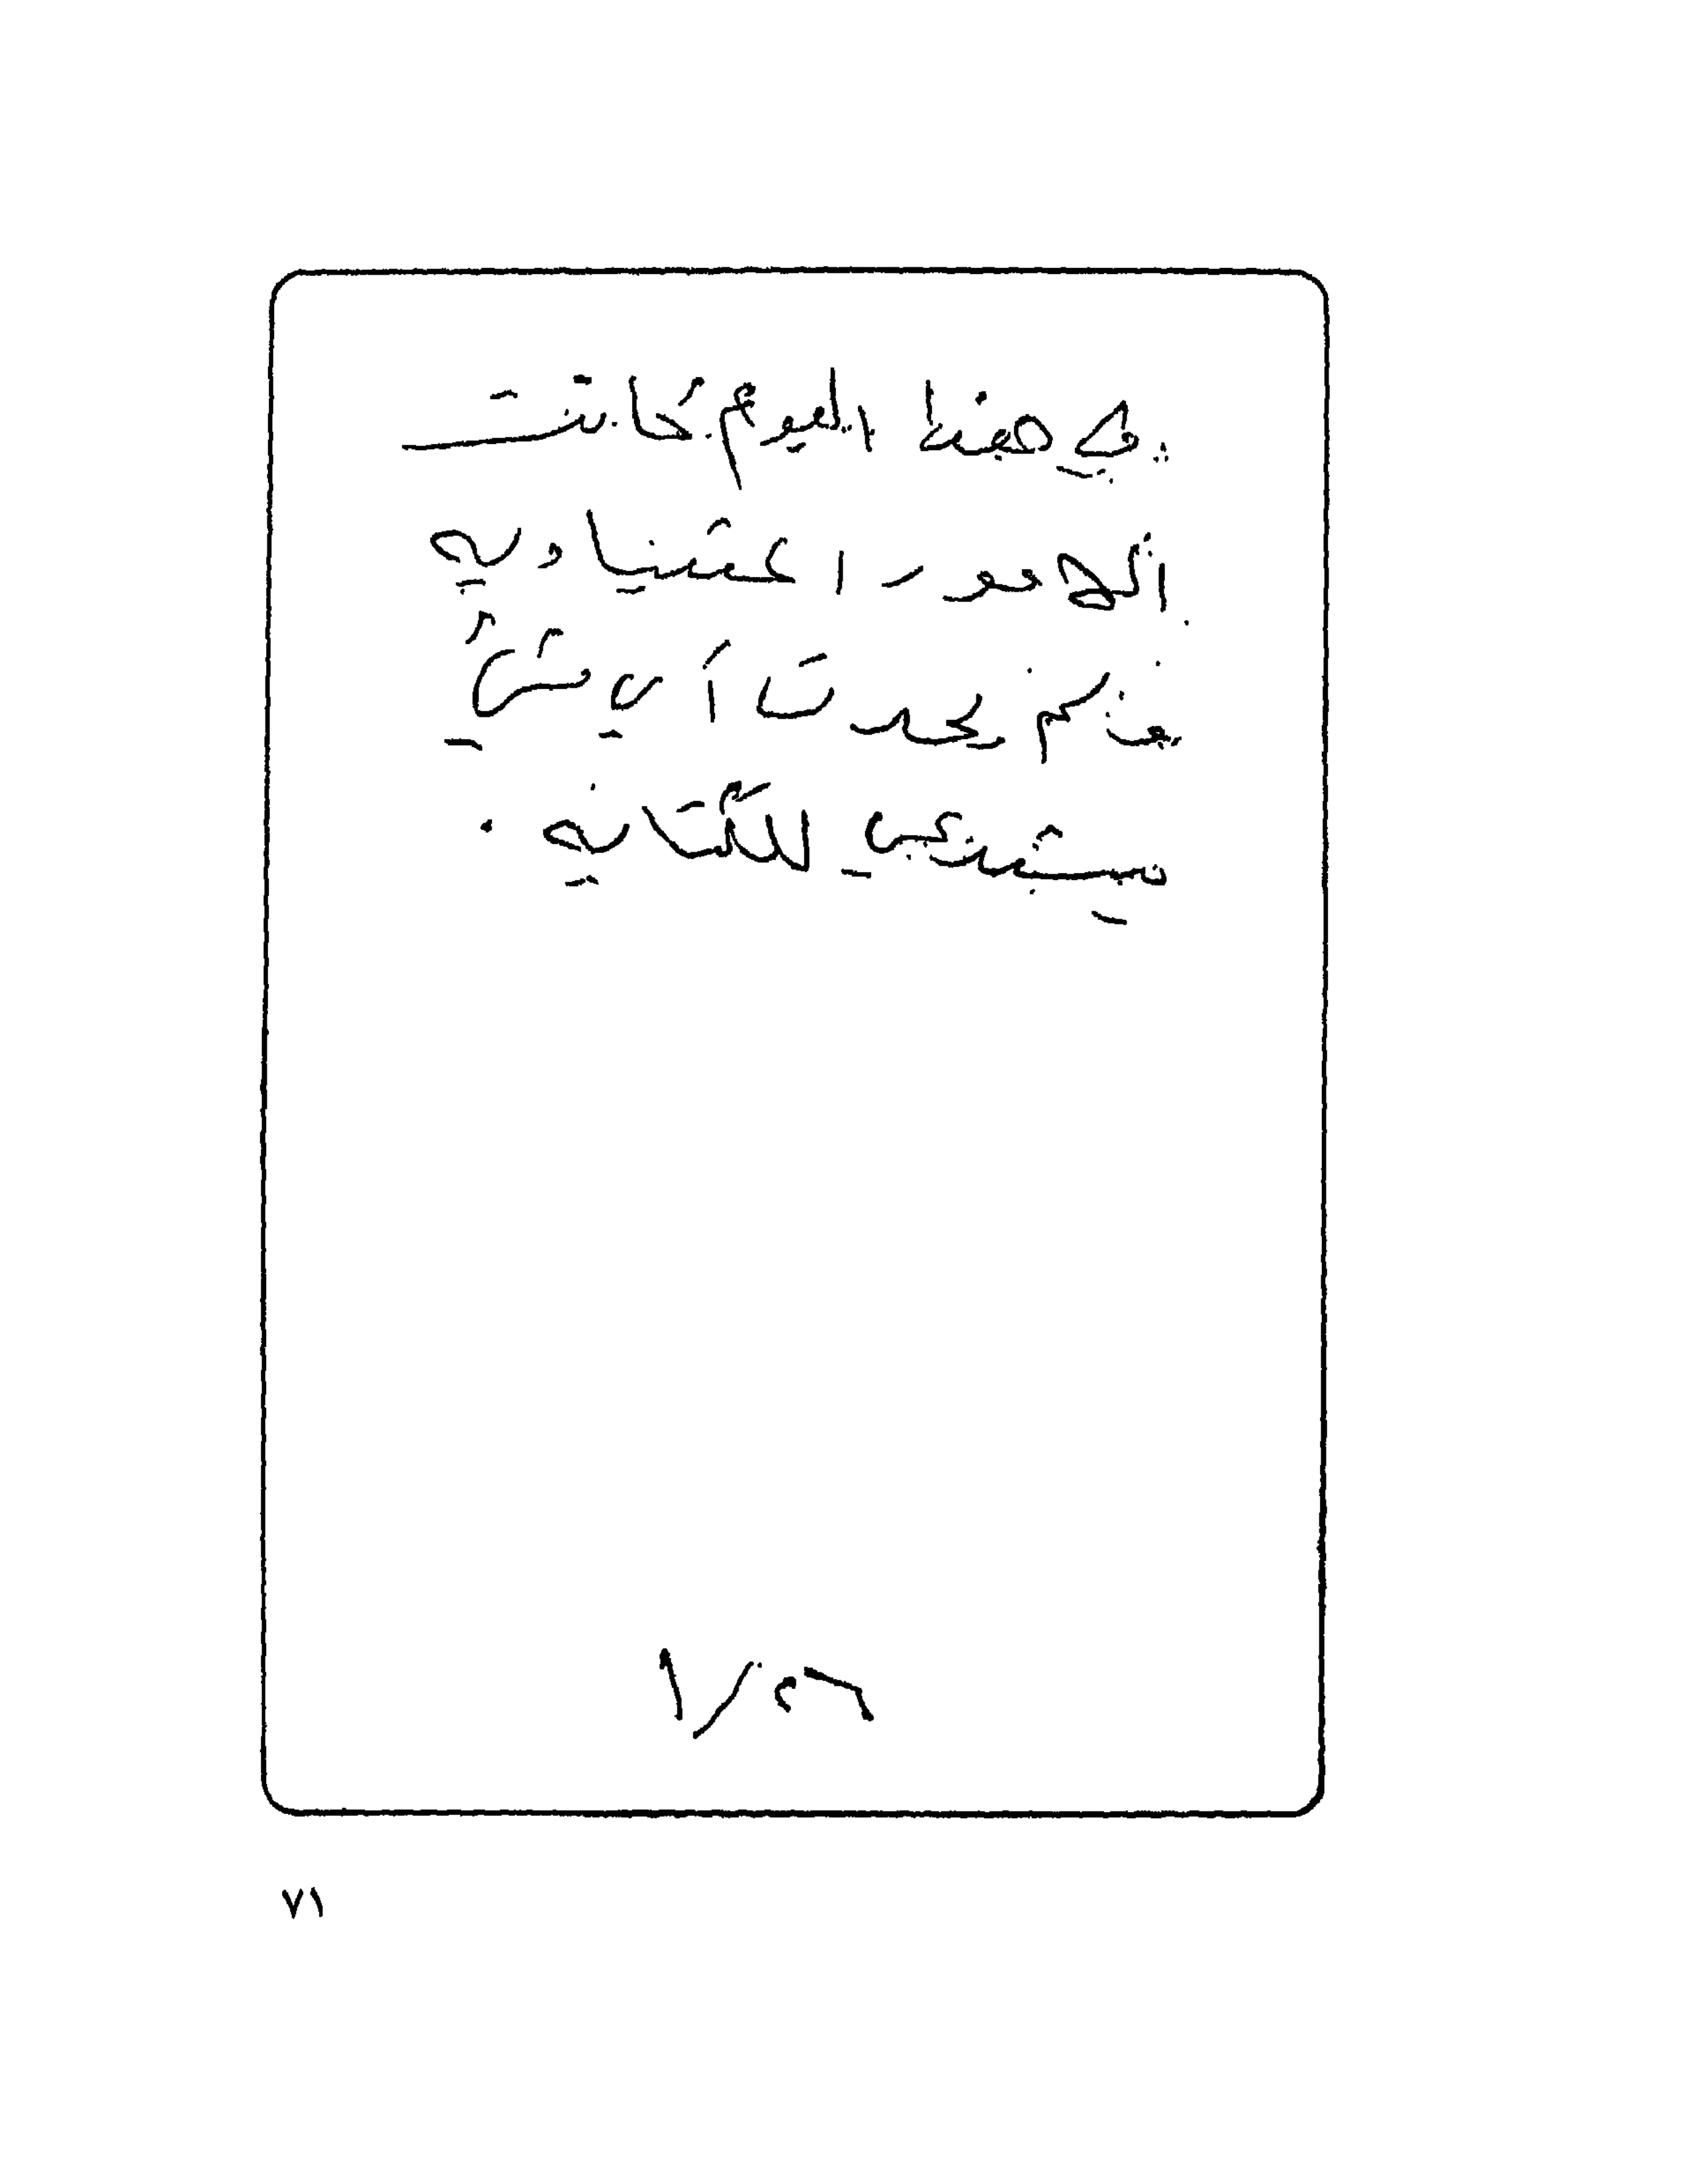 في هذا اليوم كانت
الامور اعتيادية
فلم يحدث أي شيء
يستدعي للكتابه .
٧١